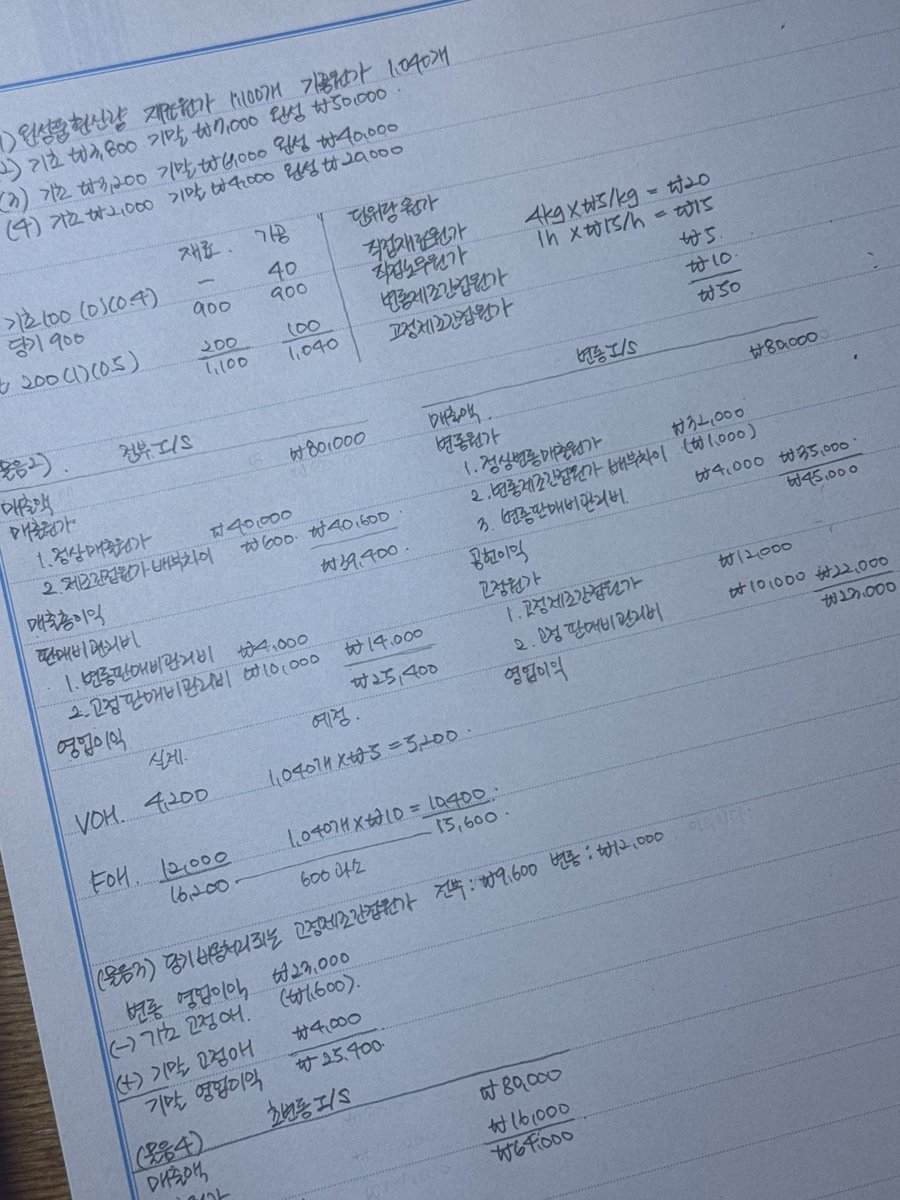 1) 완성품환산량 재료원가 1,100개 가공원가 1,040개
2) 기초 ₩3,800 기말 ₩7,000 완성 ₩50,000
(3) 기초 ₩3,200 기말 ₩6,000 완성 ₩40,000
(4) 기초 ₩2,000 기말 ₩4,000 완성 ₩20,000
재료 가공
기초 100 (0)(0.4) — 40
당기 900 900 900
200 (1)(0.5) 200 100
1,100 1,040
단위당 원가
직접재료원가 4kg × ₩5/kg = ₩20
직접노무원가 1h × ₩15/h = ₩15
변동제조간접원가 ₩5
고정제조간접원가 ₩10
₩50
물음2) 전부 I/S
매출액 ₩80,000
매출원가
1. 정상매출원가 ₩40,000
2. 제조간접원가 배부차이 ₩600 ₩40,600
매출총이익 ₩39,400
판매비관리비
1. 변동판매비관리비 ₩4,000
2. 고정판매비관리비 ₩10,000 ₩14,000
영업이익 ₩25,400
변동 I/S
매출액 ₩80,000
변동원가
1. 정상변동매출원가 ₩32,000
2. 변동제조간접원가 배부차이 (₩1,000)
3. 변동판매비관리비 ₩4,000 ₩35,000
공헌이익 ₩45,000
고정원가
1. 고정제조간접원가 ₩12,000
2. 고정판매비관리비 ₩10,000 ₩22,000
영업이익 ₩23,000
실제 예정
VOH. 4,200 1,040개 × ₩5 = 5,200
FOH. 12,000 1,040개 × ₩10 = 10,400
16,200 600 과소 15,600
(물음3) 당기비용처리되는 고정제조간접원가 전부 : ₩9,600 변동 : ₩12,000
변동 영업이익 ₩23,000
(-) 기초 고정OH. (₩1,600)
(+) 기말 고정OH ₩4,000
기말 영업이익 ₩25,400
(물음4) 초변동 I/S
매출액 ₩80,000
₩16,000
₩64,000